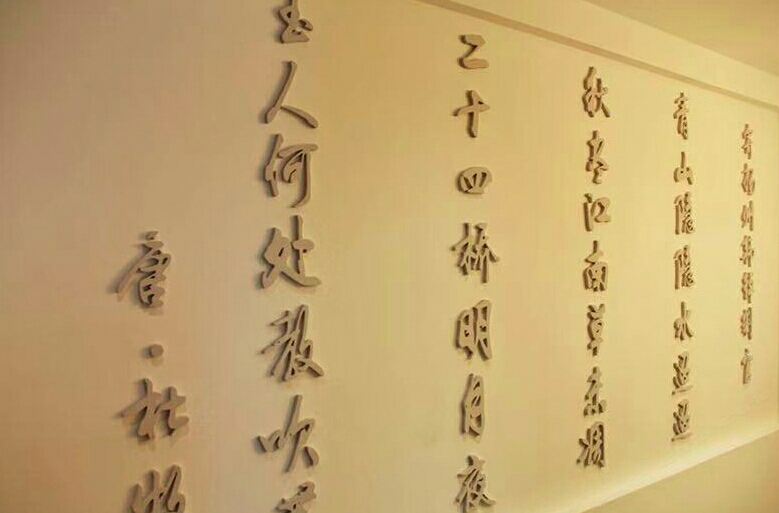 寄扬州韩绰判官
青山隐隐水迢迢
秋尽江南草未凋
二十四桥明月夜
玉人何处教吹
唐·杜牧